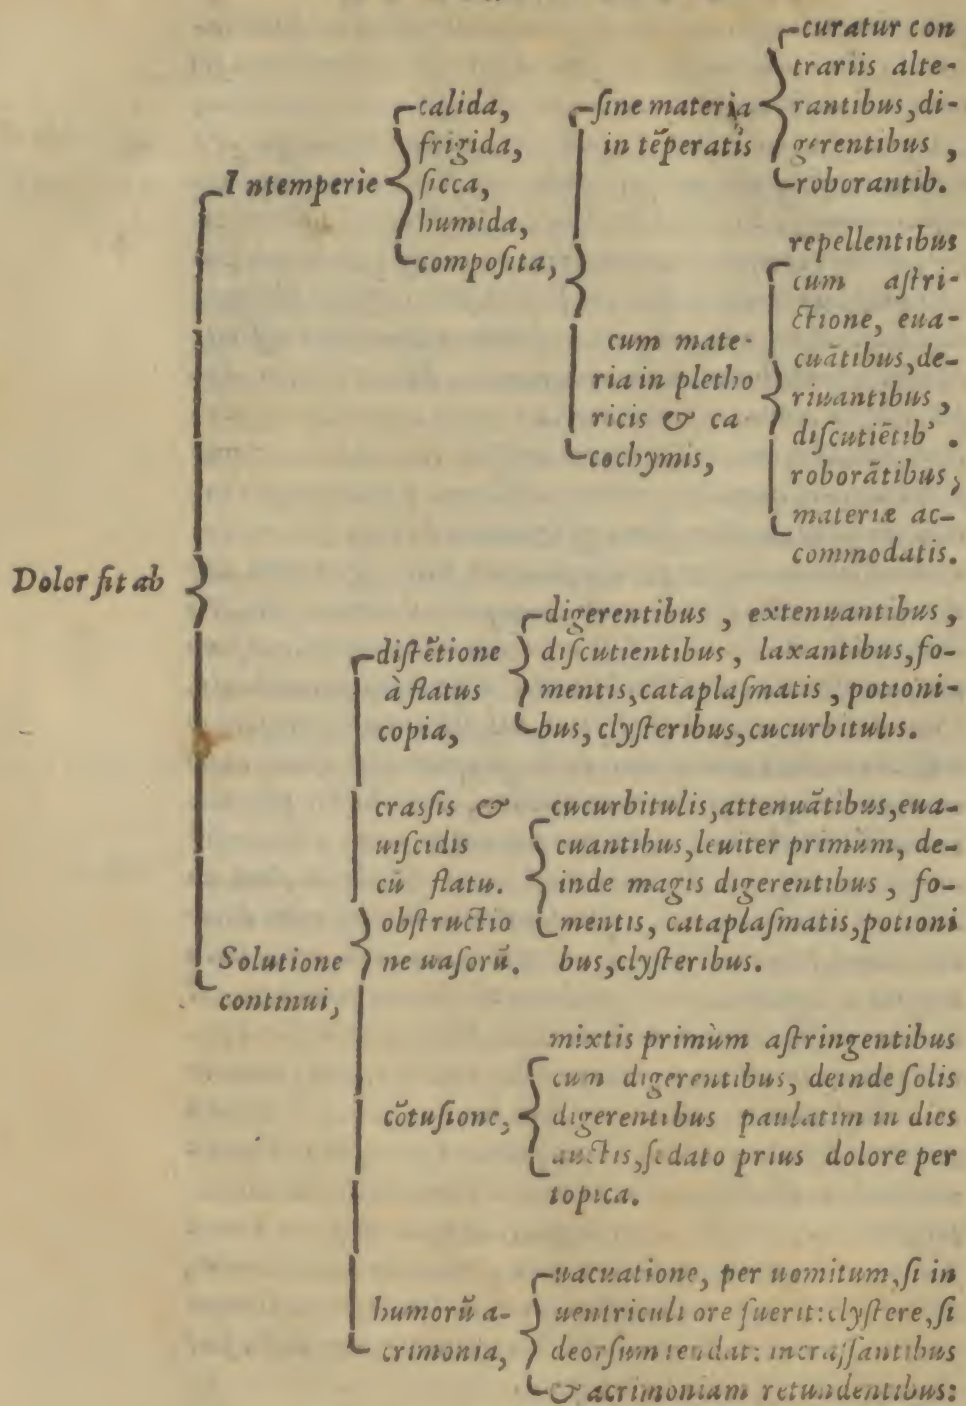 Dolor fit ab
Intemperie
calida,
frigida,
ſicca,
humida,
compoſita,
ſine materia
in tēperatis
curatur con
trariis alte-
rantibus, di-
gerentibus,
roborantib.
cum mate-
ria in pletho
ricis & ca
cochymis,
repellentibus
cum aſtri-
ctione, eua-
cuātibus, de-
riuantibus,
diſcutiētib'.
roborātibus,
materiæ ac-
commodatis.
Solutione
continui,
diſtētione
à flatus
copia,
digerentibus, extenuantibus,
diſcutientibus, laxantibus, fo-
mentis, cataplaſmatis, potioni-
bus, clyſteribus, cucurbitulis.
craſſis &
uiſcidis
cū flatu.
obſtructio
ne uaſorū.
cucurbitulis, attenuātibus, eua-
cuantibus, leuiter primùm, de-
inde magis digerentibus, fo-
mentis, cataplaſmatis, potioni
bus, clyſteribus.
cōtuſione,
mixtis primùm aſtringentibus
cum digerentibus, deinde ſolis
digerentibus paulatim in dies
auctis, ſedato prius dolore per
topica.
humorū a-
crimonia,
uacuatione, per uomitum, ſi in
uentriculi ore fuerit: clyſtere, ſi
deorſum tendat: incraſſantibus
& acrimoniam retundentibus: